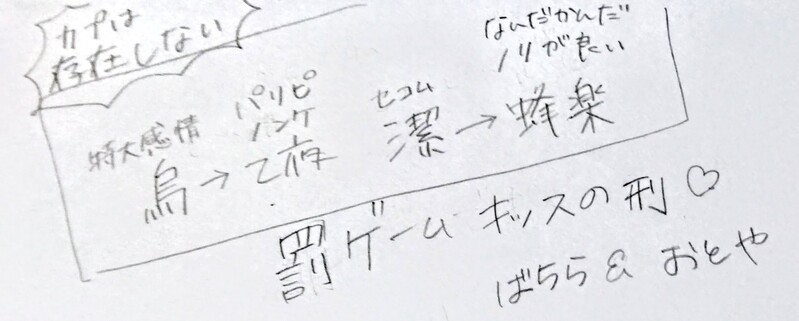 カプは
存在しない
特大感情
烏→乙夜
パリピ
ノンケ
セコム
潔→蜂楽
なんだかんだ
ノリが良い
罰ゲーム キッスの刑♡
ばちら & おとや